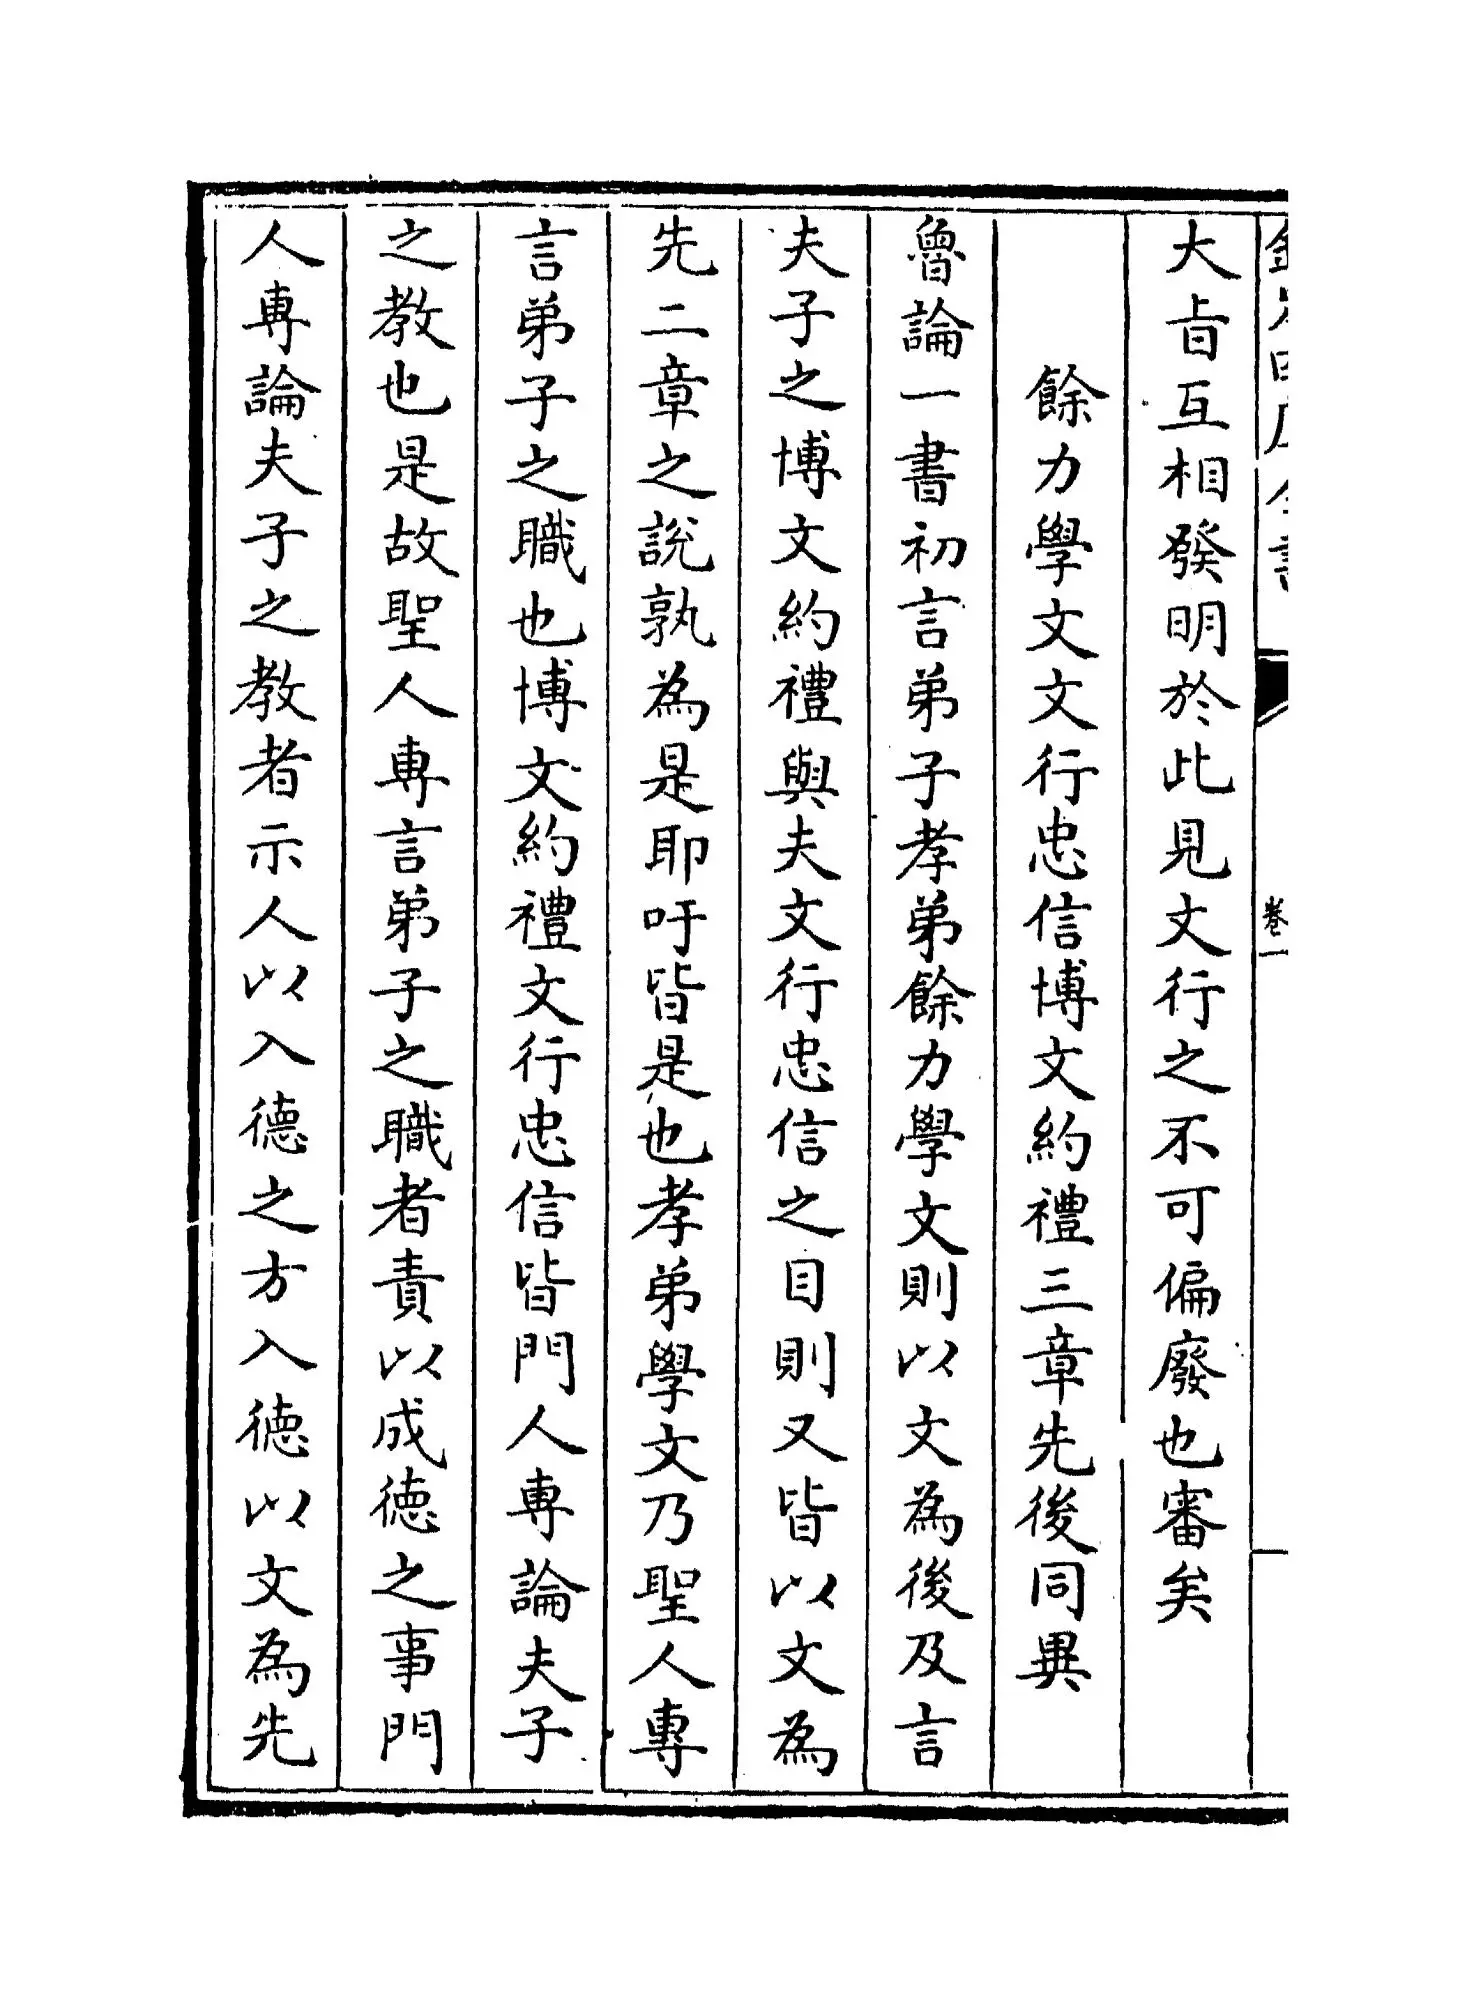 欽定四庫全書 卷一
大旨互相發明於此見文行之不可偏廢也審矣
餘力學文文行忠信博文約禮三章先後同異
魯論一書初言弟子孝弟餘力學文則以文為後及言
夫子之博文約禮與夫文行忠信之目則又皆以文為
先二章之說孰為是耶吁皆是也孝弟學文乃聖人專
言弟子之職也博文約禮文行忠信皆門人專論夫子
之教也是故聖人專言弟子之職者責以成德之事門
人專論夫子之教者示人以入德之方入德以文為先